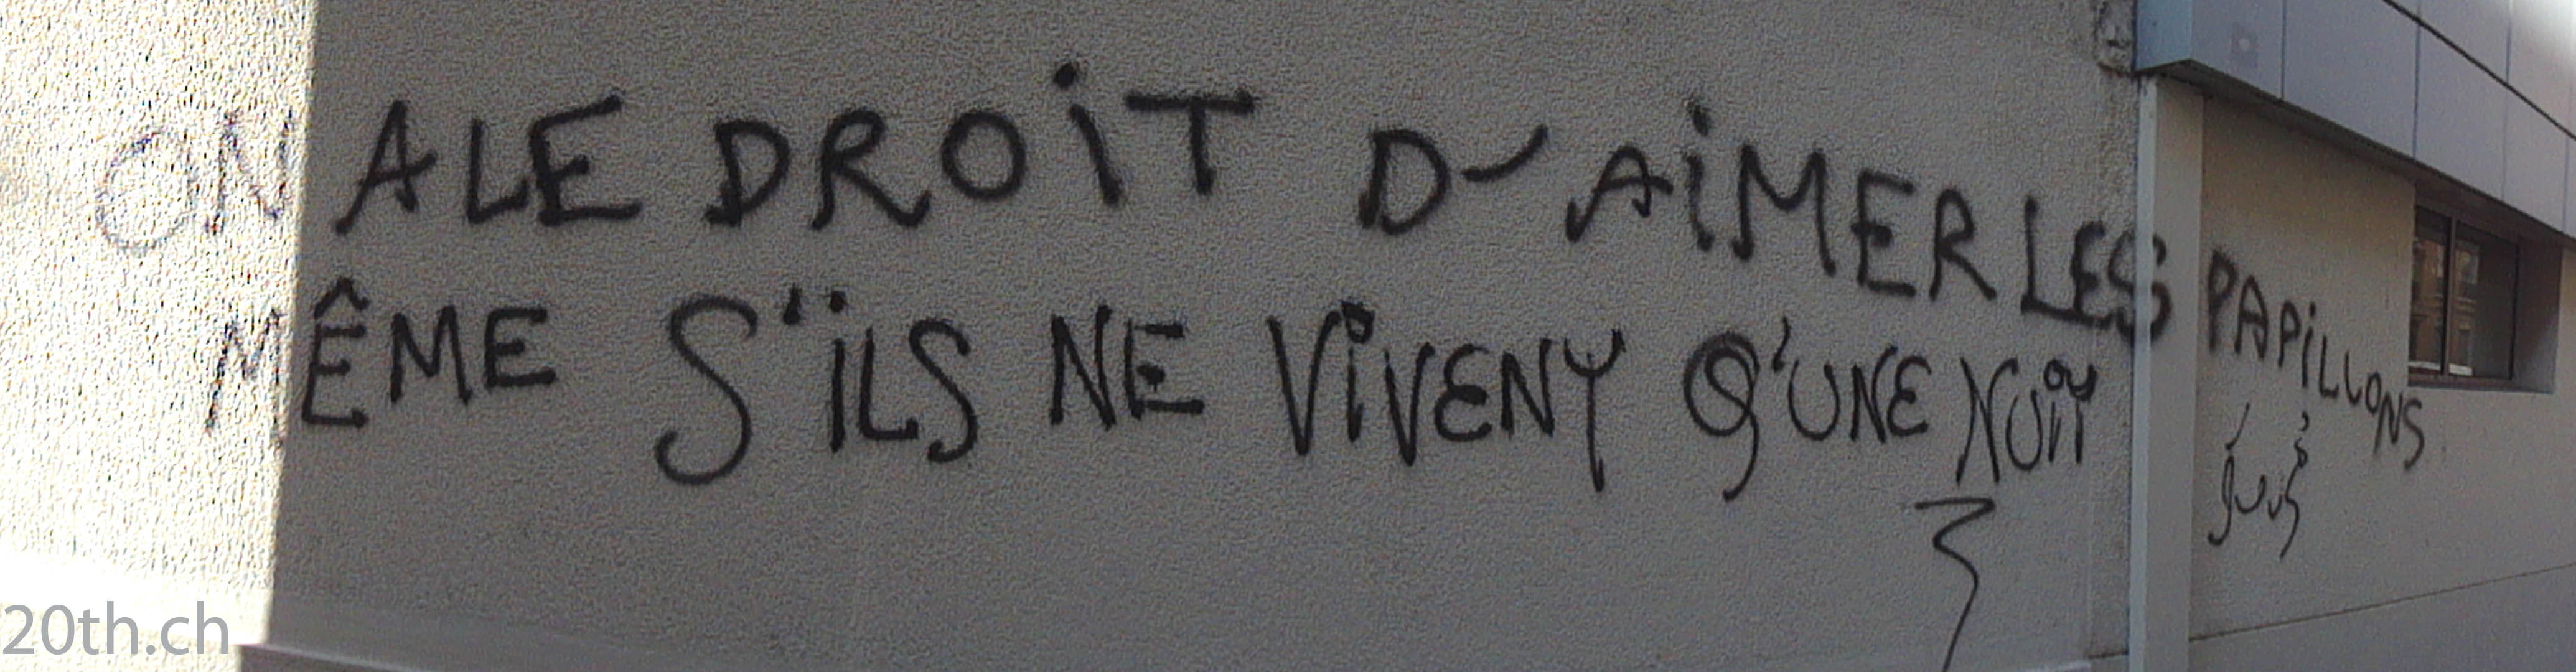 ON A LE DROIT D'AIMER LES PAPILLONS
MÊME S'ILS NE VIVENT Q'UNE NUIT
20th.ch